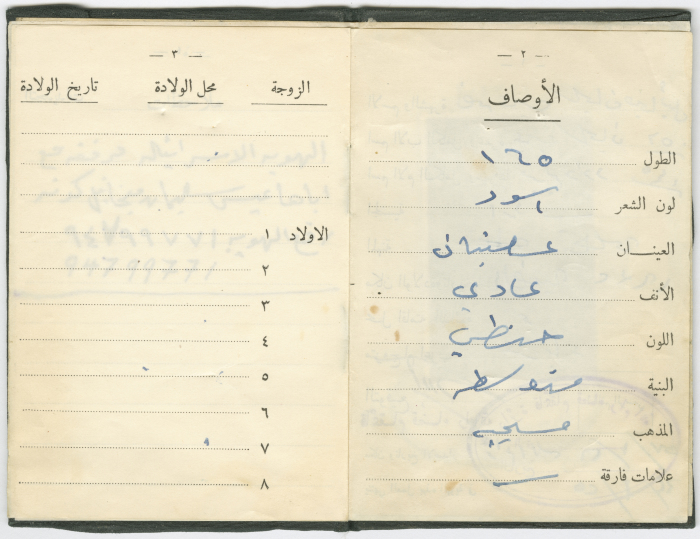 — ٢ —
الأوصاف
الطول ١٦٥
لون الشعر اسود
العينان عسليتان
الأنف عادي
اللون حنطي
البنية متوسطه
المذهب مسيحي
علامات فارقة —
— ٣ —
الزوجة محل الولادة تاريخ الولادة
الاولاد ١
٢
٣
٤
٥
٦
٧
٨